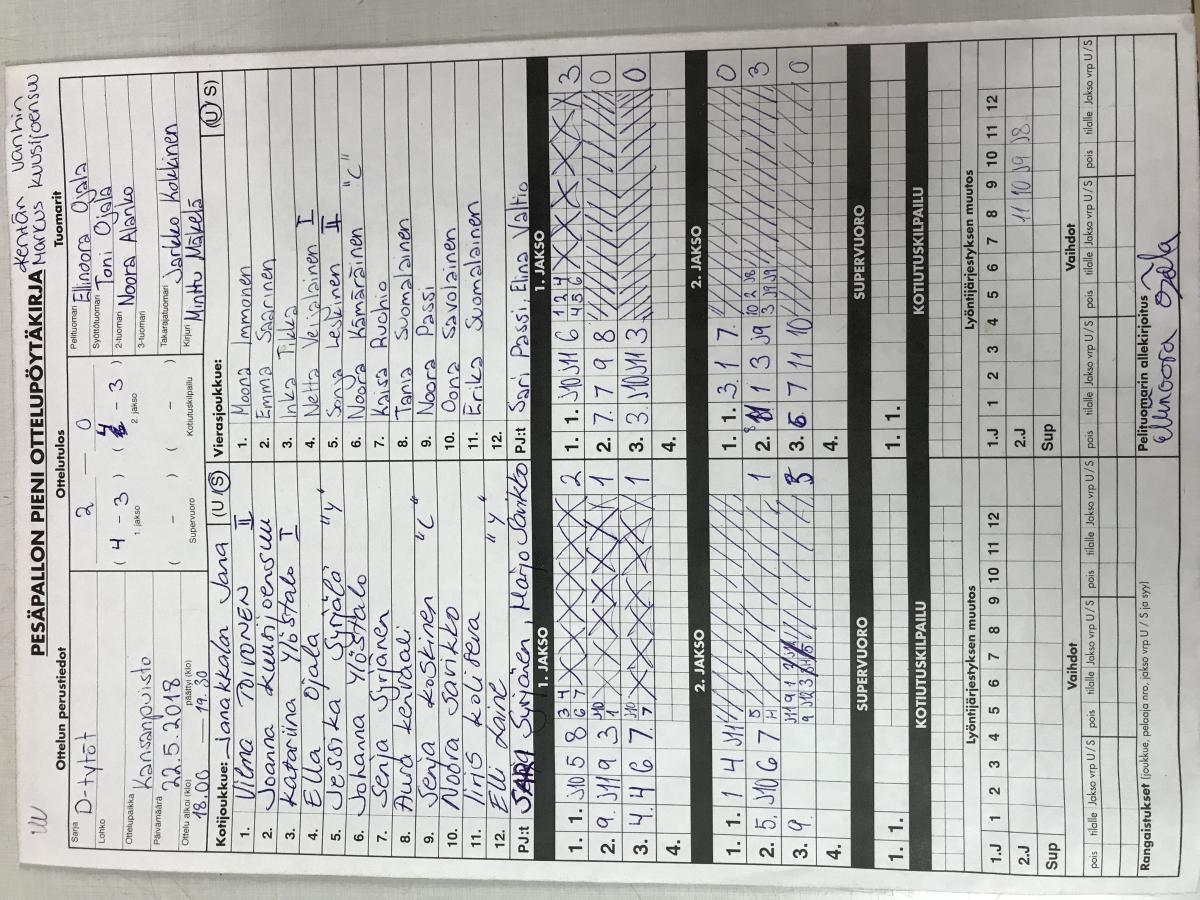 PESÄPALLON PIENI OTTELUPÖYTÄKIRJA
Kentän vanhin
Markus Kuusijoensuu
Ottelun perustiedot
Sarja D-tytöt
Lohko
Ottelupaikka Kansanpuisto
Päivämäärä 22.5.2018
Ottelu alkoi (klo) päättyi (klo)
18.00 — 19.30
Ottelutulos
2 — 0
( 4 - 3 ) ( 4 - 3 )
1. jakso 2. jakso
( - ) ( - )
Supervuoro Kotiutuskilpailu
Tuomarit
Pelituomari Ellinoora Ojala
Syöttötuomari Toni Ojala
2-tuomari Noora Alanko
3-tuomari
Takarajatuomari Jarkko Kokkinen
Kirjuri Minttu Mäkelä
Kotijoukkue: Janakkalan Jana (U/S)
1. Vilma Toivonen II
2. Joanna Kuusijoensuu
3. Katariina Ylöstalo I
4. Ella Ojala
5. Jessika Syrjälä "y"
6. Johanna Ylöstalo
7. Senja Syrjänen
8. Aura Kendali
9. Senja Koskinen "C"
10. Noora Savikko
11. Iiris Kolitseva
12. Elli Laine "y"
PJ:t Syrjänen, Marjo Savikko
Vierasjoukkue: (U/S)
1. Moona Immonen
2. Emma Saarinen
3. Inka Tikka
4. Netta Venäläinen I
5. Sonja Leskinen II
6. Noora Kämäräinen "C"
7. Kaisa Ruohio
8. Tania Suomalainen
9. Noora Passi
10. Oona Savolainen
11. Erika Suomalainen
12.
PJ:t Sari Passi, Elina Valtio
1. JAKSO
1. 1. J10 5 8 3 4 6 7 2
2. 9. J11 9 3 J10 1 1
3. 4. 4 6 7. J10 7 1
4.
1. JAKSO
1. 1. J10 J11 6 1 2 4 4 5 6 3
2. 7. 7 9 8 0
3. 3. J10 J11 3 0
4.
2. JAKSO
1. 1. 1 4 J11
2. 5. J10 6 7 1
3. 9
4.
2. JAKSO
1. 1. 3. 1 7. 0
2. 1 3 J9 10 2 J8 3 J9 J9 3
3. 7 11 10 0
4.
SUPERVUORO
1. 1.
SUPERVUORO
1. 1.
KOTIUTUSKILPAILU
KOTIUTUSKILPAILU
Lyöntijärjestyksen muutos
1.J 1 2 3 4 5 6 7 8 9 10 11 12
2.J
Sup
Lyöntijärjestyksen muutos
1.J 1 2 3 4 5 6 7 8 9 10 11 12
2.J 11 10 J9 J8
Sup
Vaihdot
pois tilalle Jakso vrp U/S pois tilalle Jakso vrp U/S pois tilalle Jakso vrp U/S
Vaihdot
pois tilalle Jakso vrp U/S pois tilalle Jakso vrp U/S pois tilalle Jakso vrp U/S
Rangaistukset (joukkue, pelaaja nro, jakso vrp U / S ja syy)
Pelituomarin allekirjoitus
Ellinoora Ojala